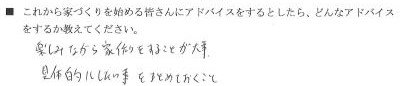 ■ これから家づくりを始める皆さんにアドバイスをするとしたら、どんなアドバイス
をするか教えてください。
楽しみながら家作りをすることが大事
具体的にしたい事をまとめておくこと